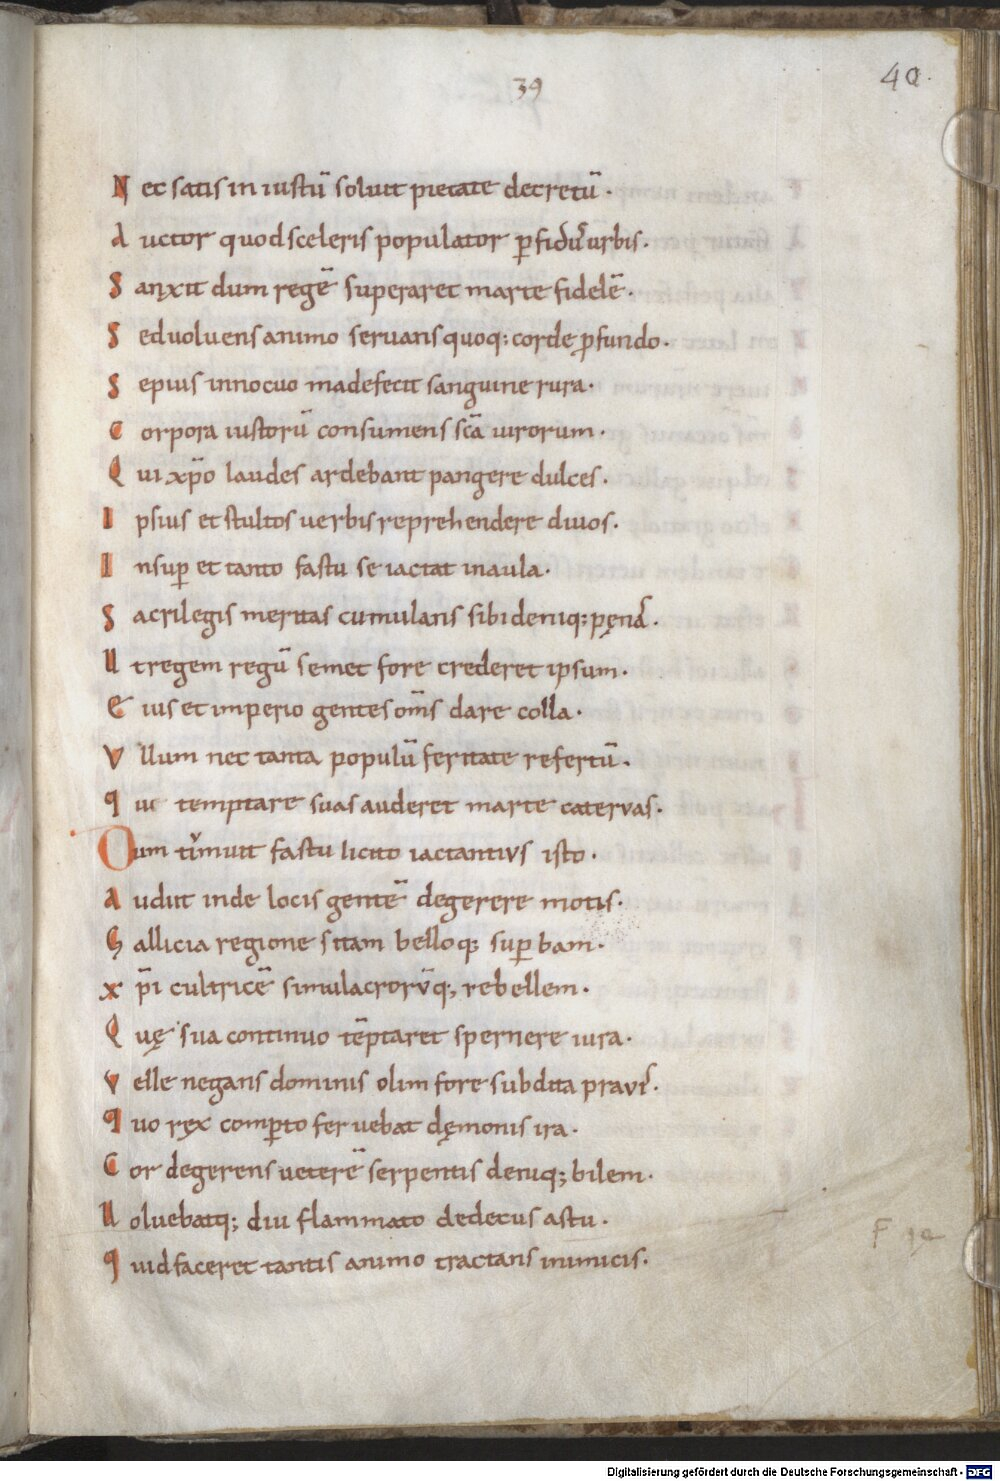 39
40.
Nec satis in iustū soluit pietate decretū·
Auctor quod sceleris populator ꝑfidus urbis·
Sanxit dum regē superaret marte fidelē·
Sed uoluens animo seruans quoq; corde ꝓfundo·
Sepius innocuo madefecit sanguine rura·
Corpora iustorū consumens scā uirorum·
Qui xp̄o laudes ardebant pangere dulces·
Ipsius et stultos uerbis reprehendere diuos·
Insuꝑ et tanto fastu se iactat in aula·
Sacrilegis meritas cumulans sibi deniq; pęnas·
Ut regem regū semet fore crederet ipsum·
Eius et imperio gentes om̄s dare colla·
Vllum nec tanta populū feritate refertū·
qui temptare suas auderet marte cateruas·
Dum tumuit fastu licito iactantius isto·
Audiit inde locis gentē degerere motis·
Gallicia regione sitam belloq; suꝑbam·
xp̄i cultricē simulacrorūq; rebellem·
Quę sua continuo tēptaret spernere iura·
Velle negans dominis olim fore subdita prauis·
quo rex comꝑto feruebat dęmonis ira·
Cor degerens ueterē serpentis deniq; bilem·
Uoluebatq; diu flammato dedecus astu·
quid faceret tantis animo tractans inimicis·
Digitalisierung gefördert durch die Deutsche Forschungsgemeinschaft - DFG